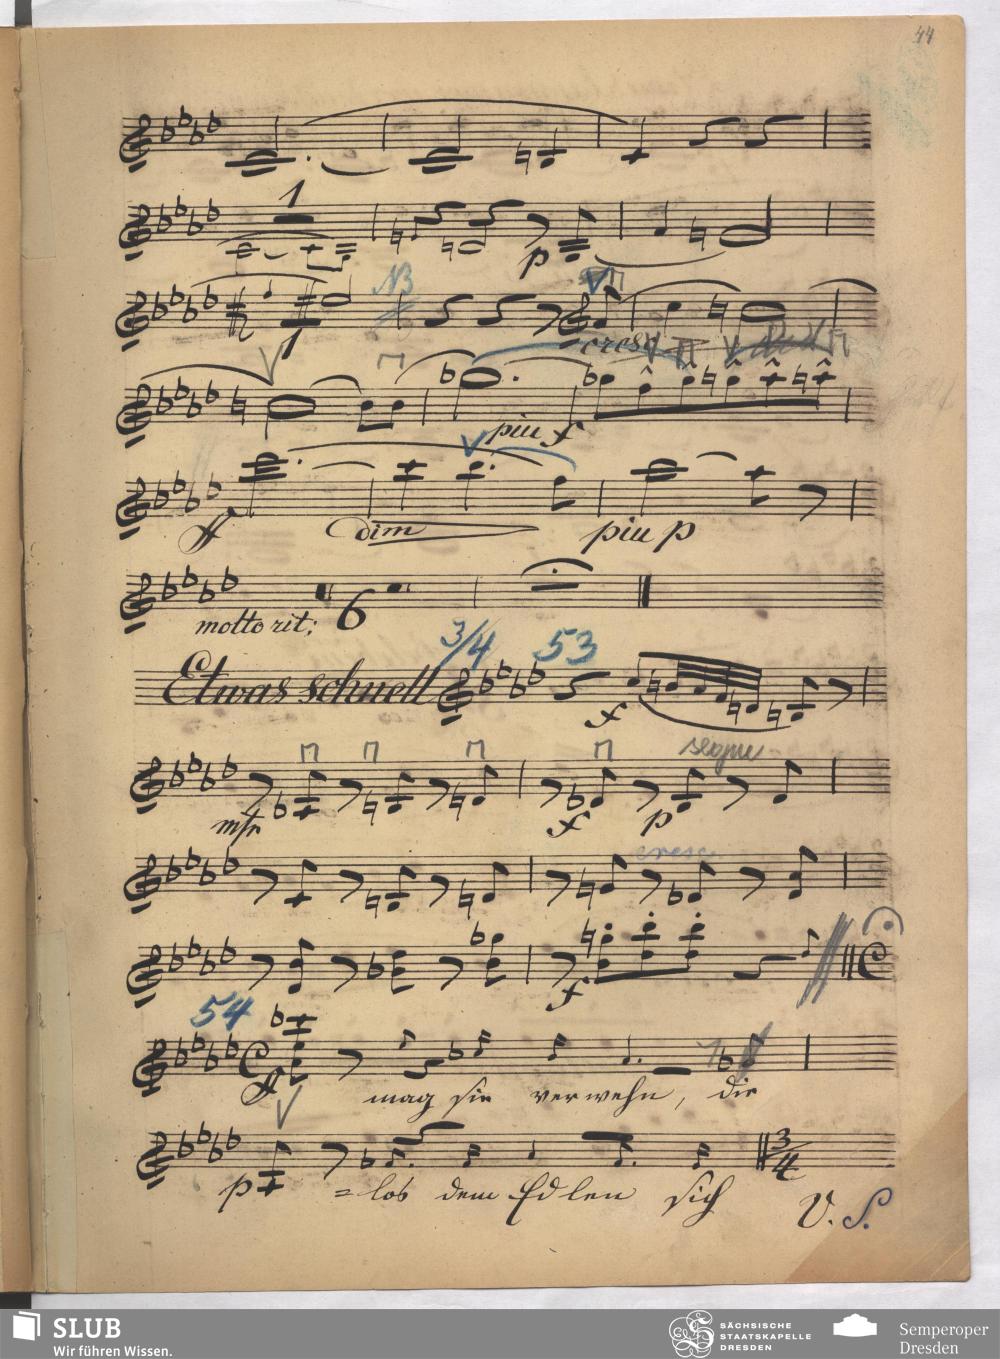 44
1
p
NB
1
cresc
piu f
ff dim piu p
molto rit: 6
3/4 53
Etwas schnell f
segue
mfr f p
cresc.
f
54
ff
mag sie verwehn, die
p =los dem Edlen sich 3/4
V. S.
SLUB
Wir führen Wissen.
SÄCHSISCHE
STAATSKAPELLE
DRESDEN
Semperoper
Dresden